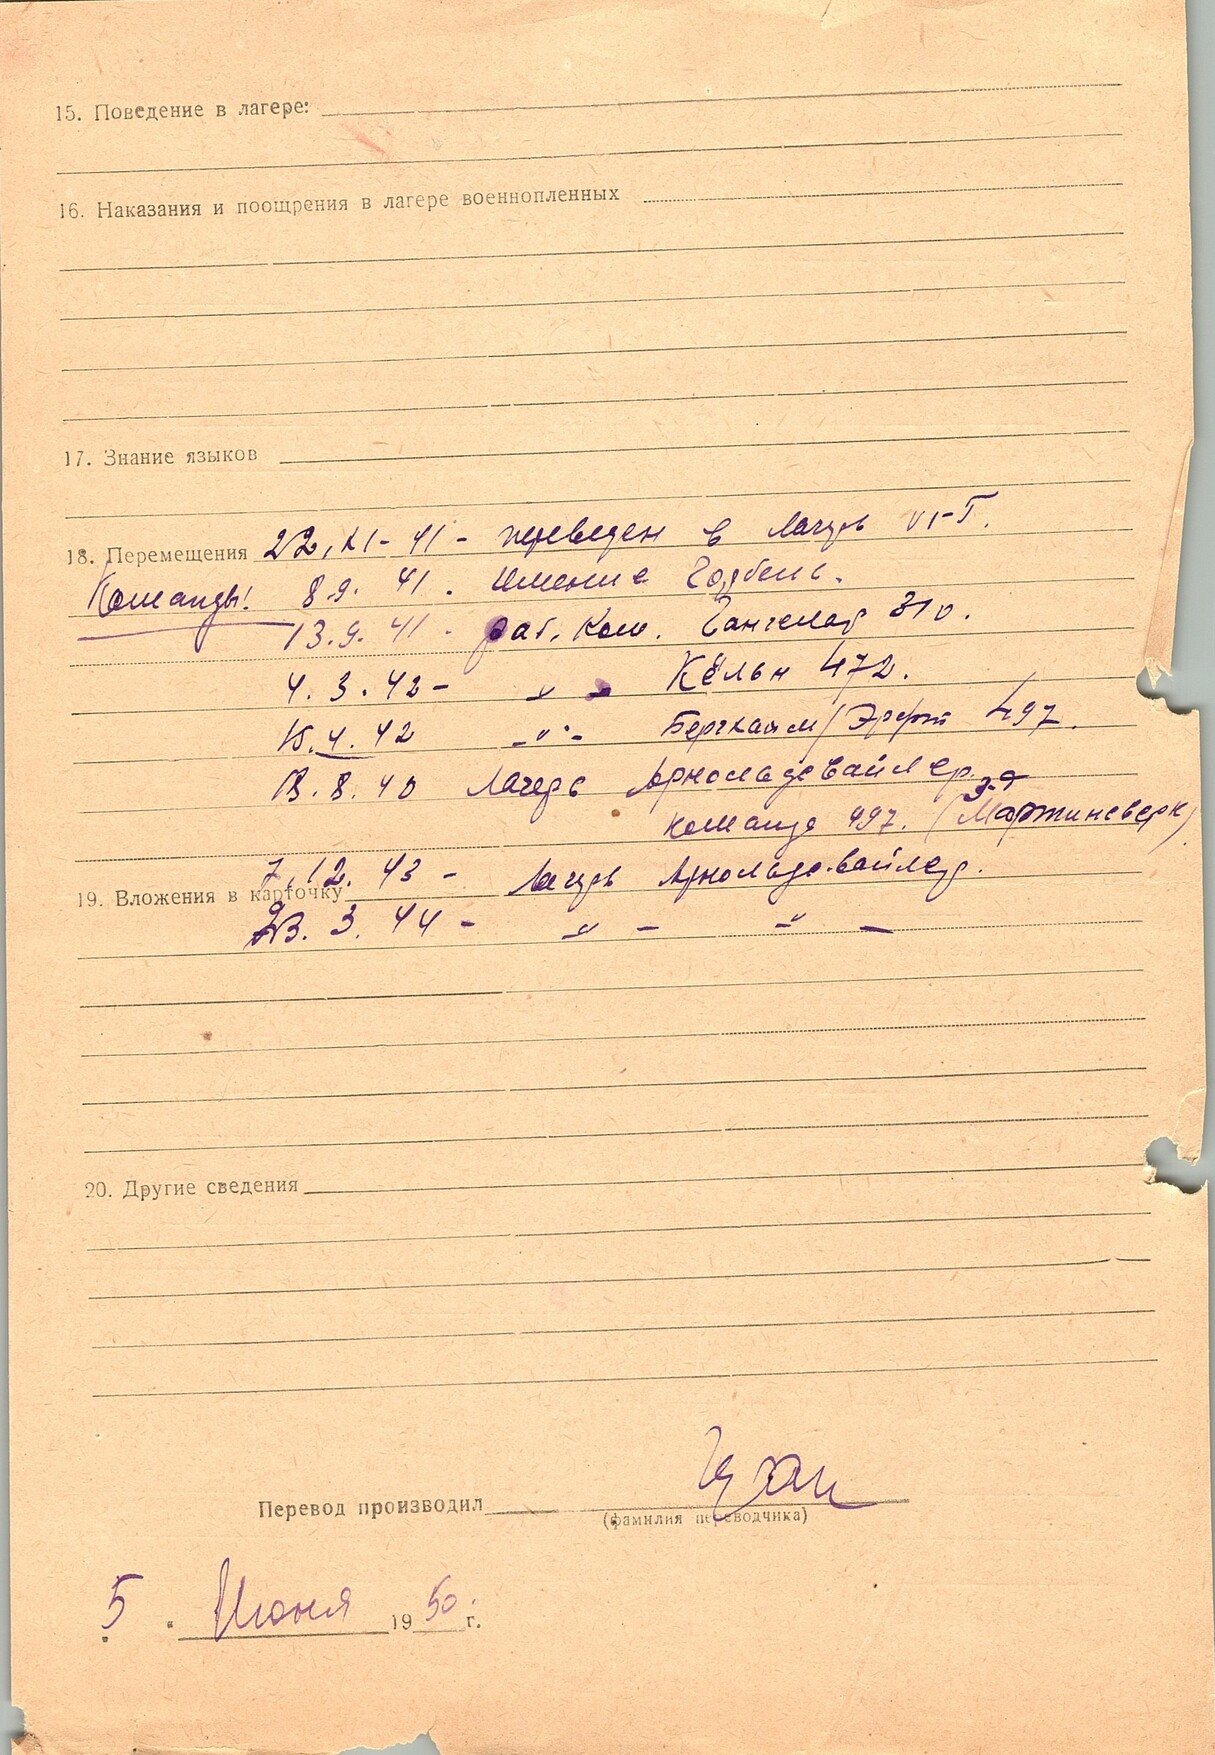 15. Поведение в лагере:
16. Наказания и поощрения в лагере военнопленных
17. Знание языков
18. Перемещения 22.XI-41 - переведен в лагерь VI-Г.
Команды! 8.9.41. имение
13.9.41 - раб. ком. 310.
4.3.42 - " " Кёльн 472.
15.4.42 -"- Бергхайм/Эрфт 497.
8.40 Лагерь Арнольдсвайлер.
команда 497. (Мартинсверк)
7.12.43 - лагерь Арнольдсвайлер.
19. Вложения в карточку
23.3.44 - " - " -
20. Другие сведения
Перевод производил
(фамилия переводчика)
5 " Июня 1950 г.